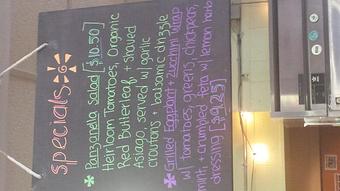 specials
Panzanella Salad [$10.50]
Heirloom Tomatoes, Organic
Red Butterleaf + shaved
Asiago, served w/ garlic
croutons + balsamic drizzle
Grilled Eggplant + Zucchini Wrap
w/ tomatoes, greens, chickpeas,
mint, + crumbled feta w/ lemon herb
dressing [$9.25]